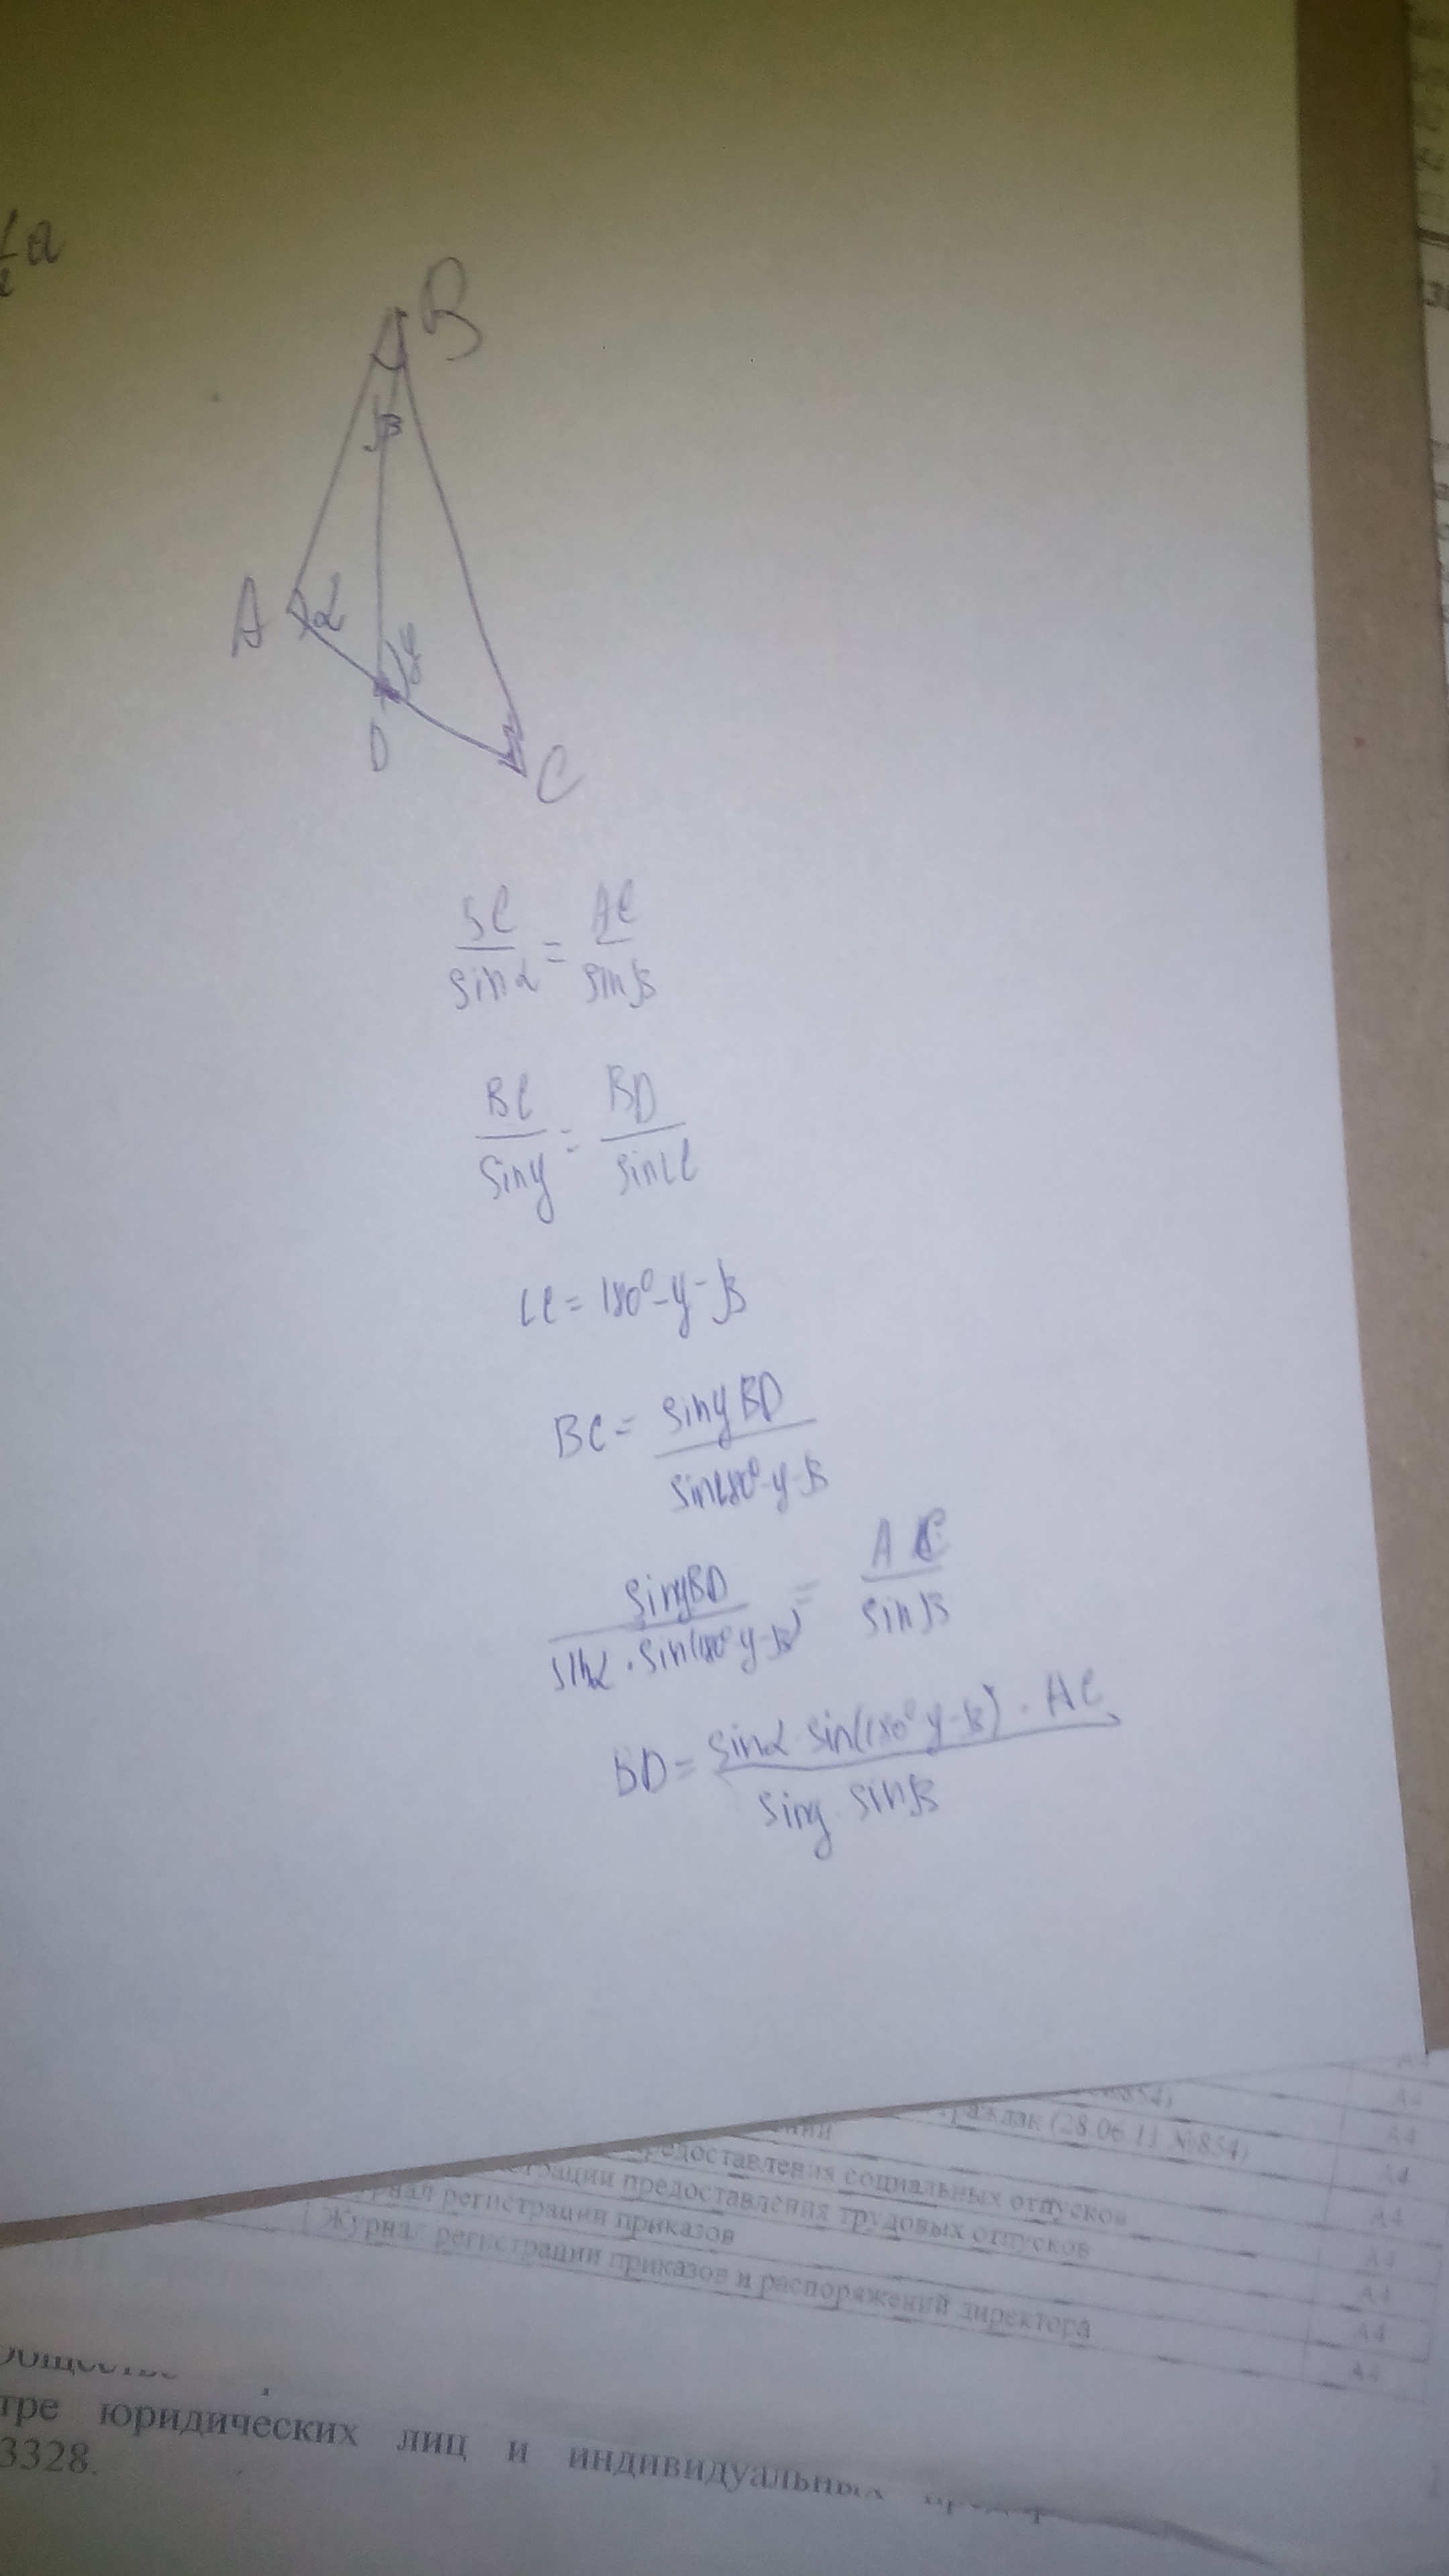 a
B
β
A α
γ
D
C
BC/sinα = AC/sinβ
BC/sinγ = BD/sin∠C
∠C = 180° - γ - β
BC = sinγ BD / sin180° - γ - β
sinγ BD / sinα · sin(180° γ - β) = AC / sinβ
BD = sinα · sin(180° γ - β) · AC / sinγ · sinβ
А4
А4
граждан (28.06.11 №854) А4
предоставления социальных отпусков А4
предоставления трудовых отпусков А4
регистрации приказов А4
Журнал регистрации приказов и распоряжений директора А4
А4
юридических лиц и индивидуальных
3328.